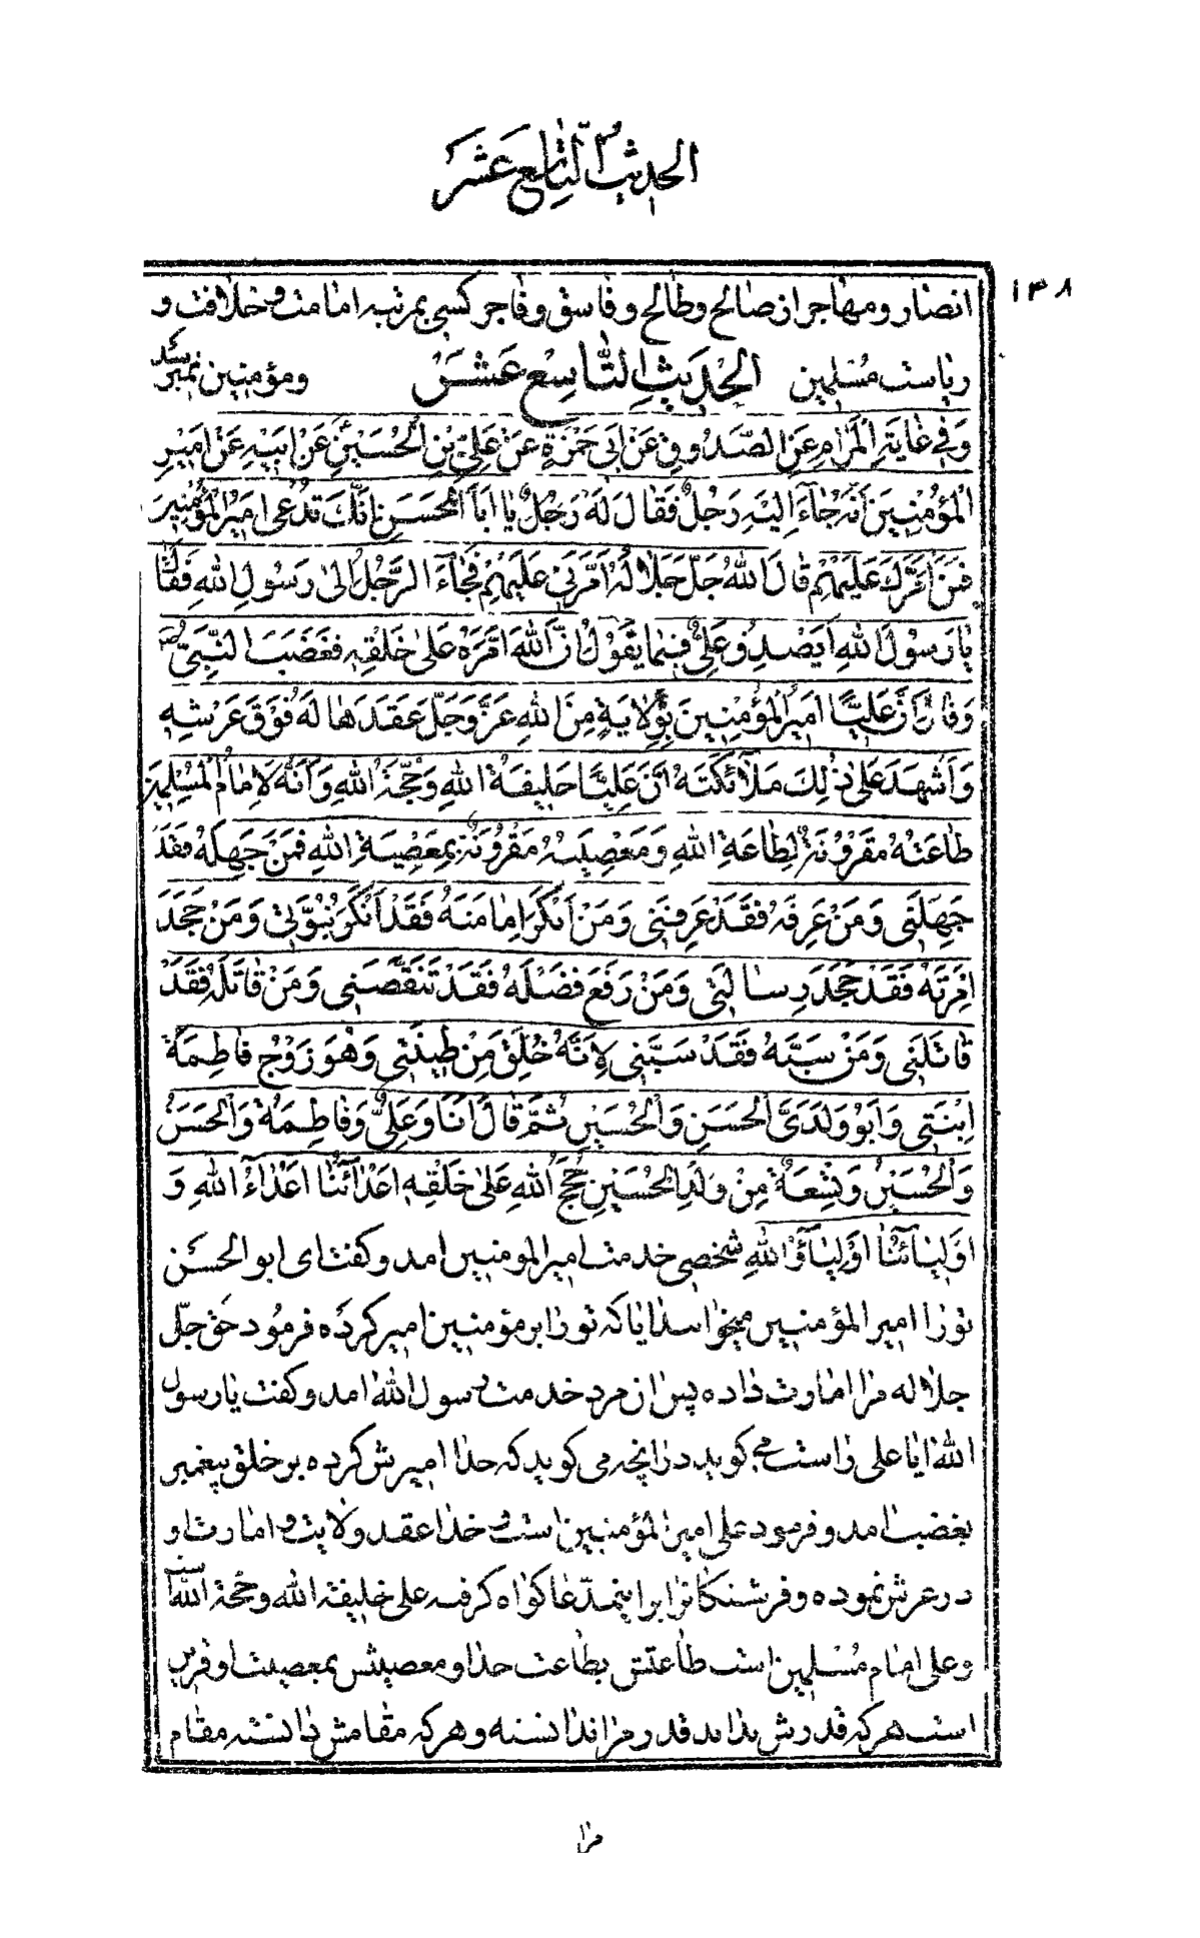 الحدیث التاسع عشر
۱۳۸
انصار و مهاجر از صالح و طالح و فاسق و فاجر کسی بمرتبه امامت و خلافت و
ریاست مسلمین الْحَدیثُ التّاسِعُ عَشَرَ و مؤمنین نمیرسد
وَفی غایَةِ الْمَرامِ عَنِ الصَّدُوقِ عَنْ اَبی حَمْزَةِ عَنْ عَلِیِّ بْنِ الْحُسَیْنِ عَنْ اَبیهِ عَنْ اَمیرِ
الْمُؤْمِنینَ اَنَّهُ جاءَ اِلَیْهِ رَجُلٌ فَقالَ لَهُ رَجُلٌ یا اَبَا الْحَسَنِ اِنَّکَ تَدُعی امیرَ الْمُؤْمِنینَ
فَمَنْ اَمَّرَکَ عَلَیْهِمْ قالَ اللهُ جَلَّ جَلالُهُ اَمَّرَنی عَلَیْهِمْ فَجاءَ الرَّجُلُ اِلی رَسُولِ اللهِ فَقالَ
یا رَسُولَ اللهِ اَیَصْدِقُ عَلِیٌّ فیما یَقُولُ اِنَّ اللهَ اَمَّرَهُ عَلی خَلْقِهِ فَغَضَبَ النَّبِیُّ ص
وَقالَ اِنَّ عَلِیًّا امیرُ الْمُؤْمِنینَ بِوِلایَةٍ مِنَ اللهِ عَزَّ وَجَلَّ عَقَدَها لَهُ فَوْقَ عَرْشِهِ
وَاَشْهَدَ عَلی ذلِکَ مَلآئِکَتَهُ اَنَّ عَلِیًّا خَلیفَةُ اللهِ وَحُجَّةُ اللهِ وَاَنَّهُ لَاِمامُ الْمُسْلِمینَ
طاعَتُهُ مَقْرُونَةٌ لِطاعَةِ اللهِ وَمَعْصِیَتُهُ مَقْرُونَةٌ بِمَعْصِیَةِ اللهِ فَمَنْ جَهِلَهُ فَقَدْ
جَهِلَنی وَمَنْ عَرِفَهُ فَقَدْ عَرِفَنی وَمَنْ اَنْکَرَ اِمامَتَهُ فَقَدْ اَنْکَرَ نُبُوَّتی وَمَنْ جَحَدَ
اِمْرَتَهُ فَقَدْ جَحَدَ رِسالَتی وَمَنْ رَفَعَ فَضْلَهُ فَقَدْ تَنَقَّصَنی وَمَنْ قاتَلَهُ فَقَدْ
قاتَلَنی وَمَنْ سَبَّهُ فَقَدْ سَبَّنی لِاَنَّهُ خُلِقَ مِنْ طینَتی وَهُوَ زَوْجُ فاطِمَةَ
اِبْنَتی وَاَبُو وَلَدَیَّ الْحَسَنِ وَالْحُسَیْنِ ثُمَّ قالَ اَنَا وَعَلِیٌّ وَفاطِمَةُ وَالْحَسَنُ
وَالْحُسَیْنُ وَتِسْعَةٌ مِنْ وَلَدِ الْحُسَیْنِ حُجَجُ اللهِ عَلی خَلْقِهِ اَعْدائُنا اَعْداءُ اللهِ وَ
اَوْلِیائُنا اَوْلِیاءُ اللهِ شخصی خدمت امیرالمومنین امد و کفت ای ابوالحسن
تو را امیرالمؤمنین میخوانند ایا که تو را بر مؤمنین امیر کرده فرمود حق جلّ
جلاله مرا امارت داده پس ان مرد خدمت رسول الله امد و کفت یا رسول
الله ایا علی راست میکوید در انچه می کوید که خدا امیرش کرده بر خلق پیغمبر
بغضب امد و فرمود علی امیرالمؤمنین است و خدا عقد ولایت و امارت او
در عرش نموده و فرشتکانرا بر اینمدّعا کواه کرفته علی خلیفة الله و حجة الله است
و علی امام مُسْلمین است طاعتش بطاعت خدا و معصیتش بمعصیت او قرین
است هر که قدرش نداند قدر مرا ندانسته و هر که مقامش دانسته مقام
مرا